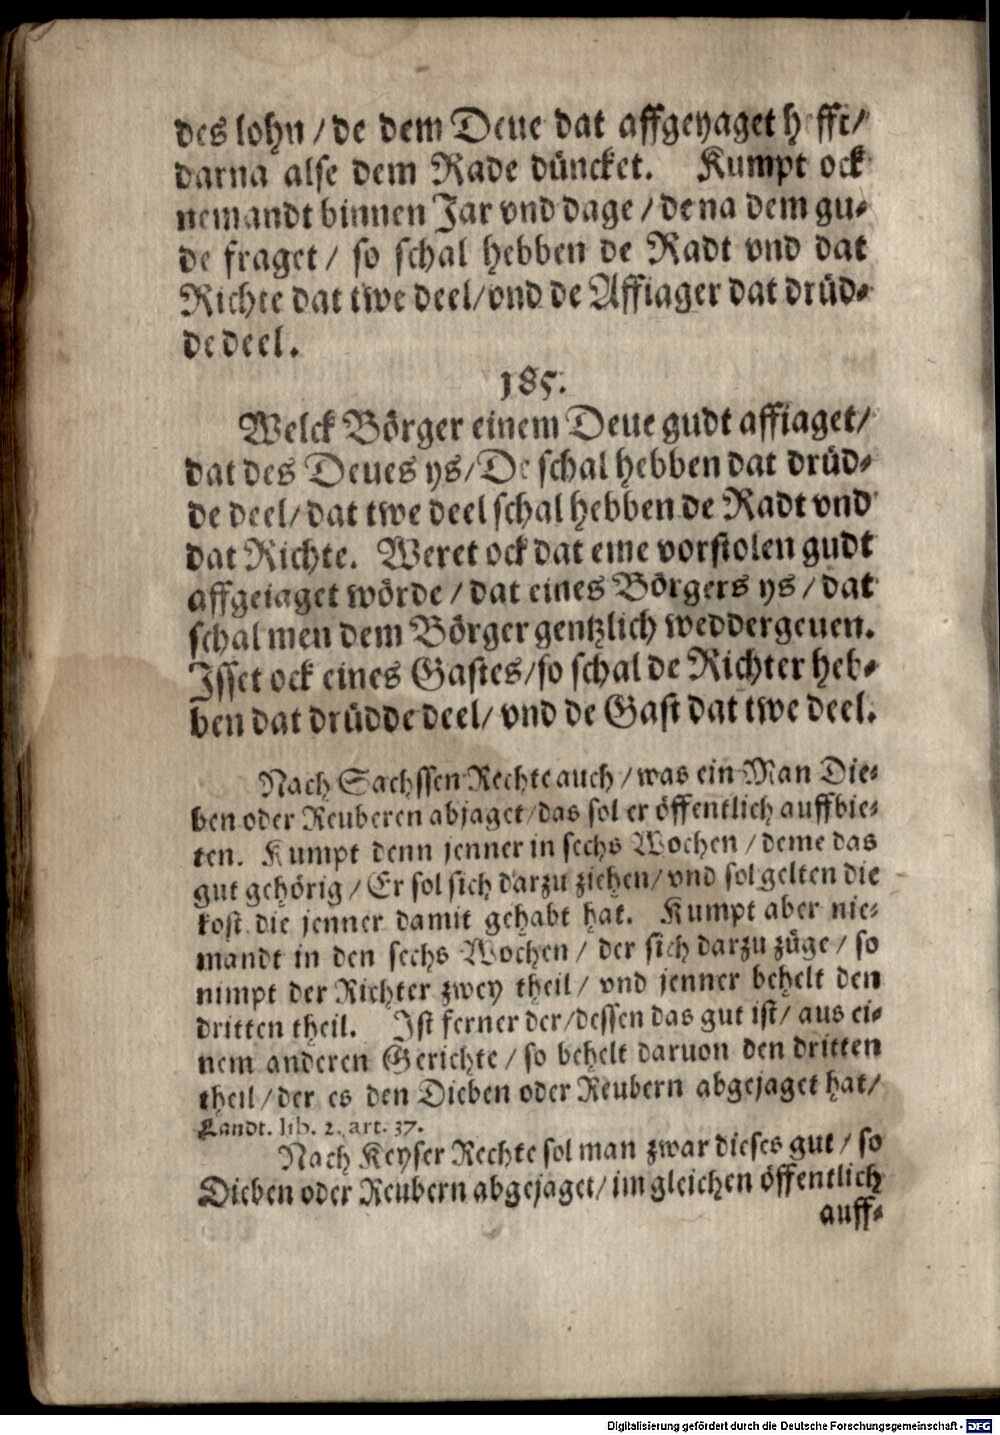 des lohn / de dem Deue dat affgeyaget hefft/
darna alse dem Rade düncket. Kumpt ock
nemandt binnen Jar vnd dage / de na dem gu⸗
de fraget / so schal hebben de Radt vnd dat
Richte dat twe deel/vnd de Affiager dat drüd⸗
de deel.
185.
Welck Börger einem Deue gudt affiaget/
dat des Deues ys/De schal hebben dat drüd⸗
de deel/ dat twe deel schal hebben de Radt vnd
dat Richte. Weret ock dat eine vorstolen gudt
affgeiaget wörde / dat eines Börgers ys / dat
schal men dem Börger gentzlich weddergeuen.
Isset ock eines Gastes/so schal de Richter heb⸗
ben dat drüdde deel/ vnd de Gast dat twe deel.
Nach Sachssen Rechte auch / was ein Man Die⸗
ben oder Reuberen abjaget/das sol er öffentlich auffbie⸗
ten. Kumpt denn jenner in sechs Wochen / deme das
gut gehörig / Er sol sich darzu ziehen/ vnd sol gelten die
kost die jenner damit gehabt hat. Kumpt aber nie⸗
mandt in den sechs Wochen / der sich darzu züge / so
nimpt der Richter zwey theil / vnd jenner behelt den
dritten theil. Ist ferner der/dessen das gut ist/ aus ei⸗
nem anderen Gerichte / so behelt daruon den dritten
theil / der es den Dieben oder Reubern abgejaget hat/
Landt. lib. 2. art. 37.
Nach Keyser Rechte sol man zwar dieses gut / so
Dieben oder Reubern abgejaget/ im gleichen öffentlich
auff⸗
Digitalisierung gefördert durch die Deutsche Forschungsgemeinschaft - DFG